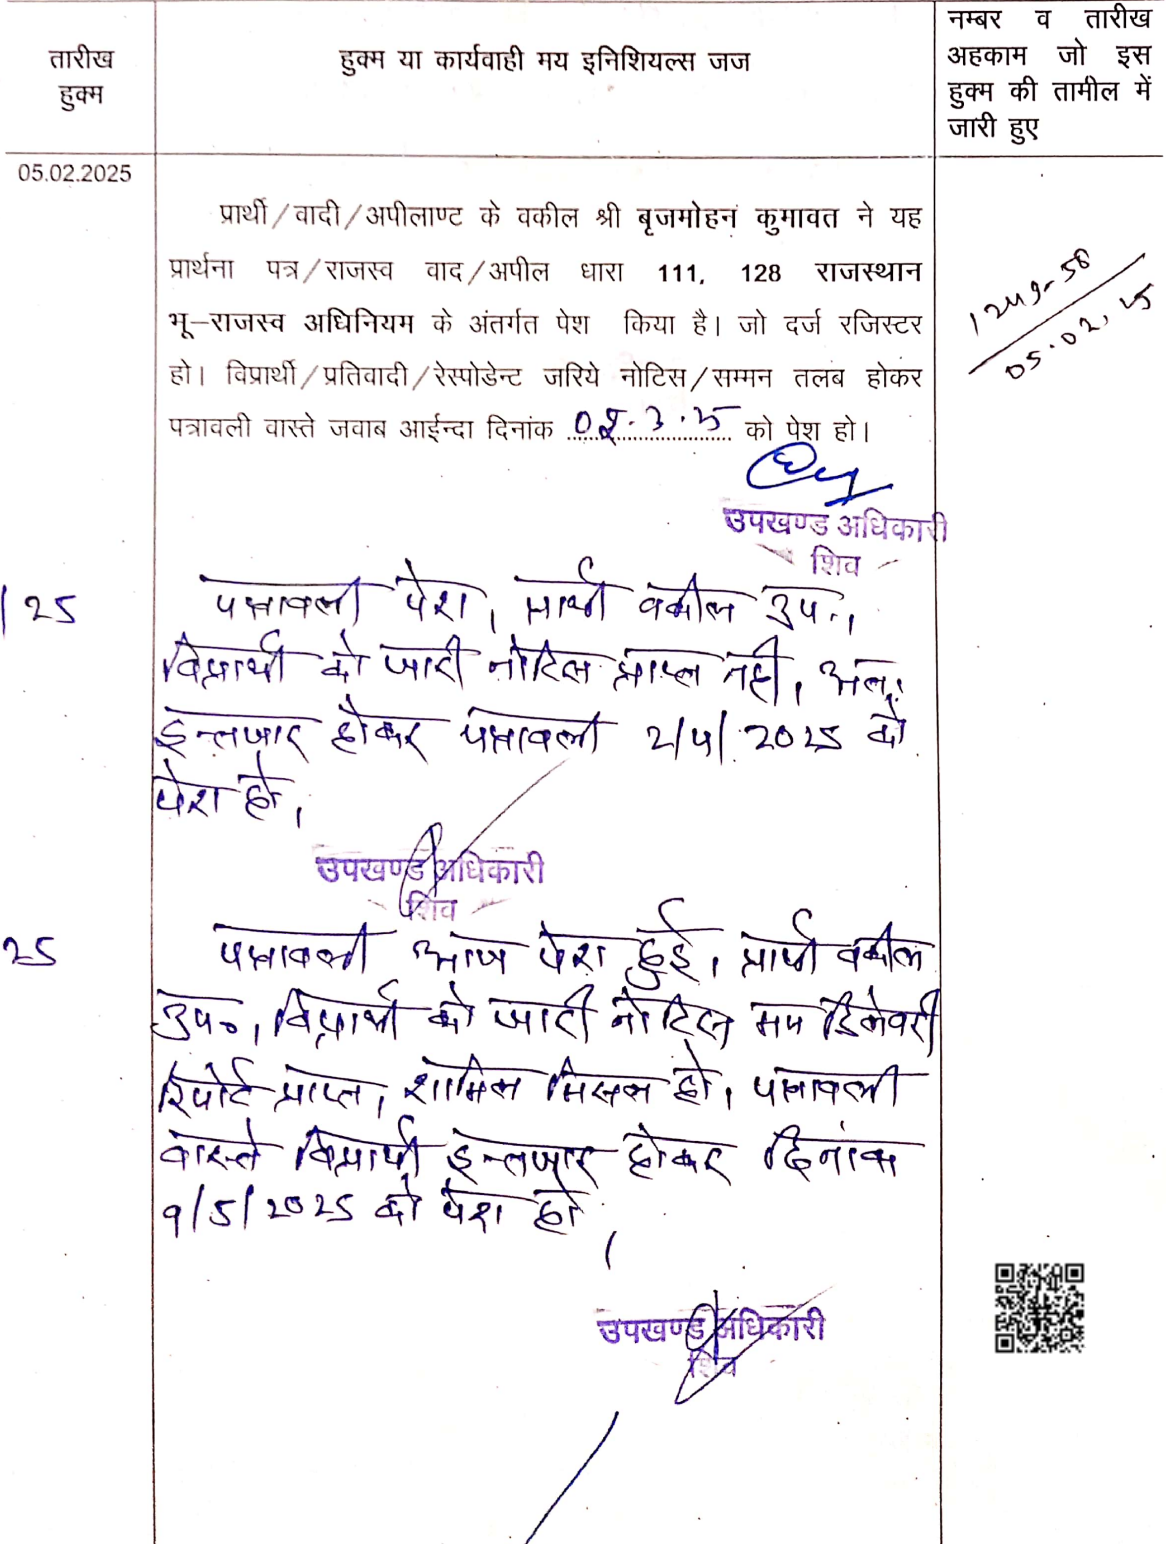 तारीख
हुक्म
हुक्म या कार्यवाही मय इनिशियल्स जज
नम्बर व तारीख
अहकाम जो इस
हुक्म की तामील में
जारी हुए
05.02.2025
प्रार्थी/वादी/अपीलाण्ट के वकील श्री बृजमोहन कुमावत ने यह
प्रार्थना पत्र/राजस्व वाद/अपील धारा 111, 128 राजस्थान
भू–राजस्व अधिनियम के अंतर्गत पेश किया है। जो दर्ज रजिस्टर
हो। विप्रार्थी/प्रतिवादी/रेस्पोडेन्ट जरिये नोटिस/सम्मन तलब होकर
पत्रावली वास्ते जवाब आईन्दा दिनांक .3.25 को पेश हो।
1249-58
05.02.25
उपखण्ड अधिकारी
शिव
25
पत्रावली पेश। प्रार्थी वकील उप.।
विप्रार्थी को जारी नोटिस प्राप्त नहीं। अतः
इन्तजार होकर पत्रावली 2/4/2025 को
पेश हो।
उपखण्ड अधिकारी
शिव
25
पत्रावली आज पेश हुई। प्रार्थी वकील
उप०। विप्रार्थी को जारी नोटिस मय डिलेवरी
रिपोर्ट प्राप्त। शामिल मिसल हो। पत्रावली
वास्ते विप्रार्थी इन्तजार होकर दिनांक
9/5/2025 को पेश हो।
उपखण्ड अधिकारी
शिव